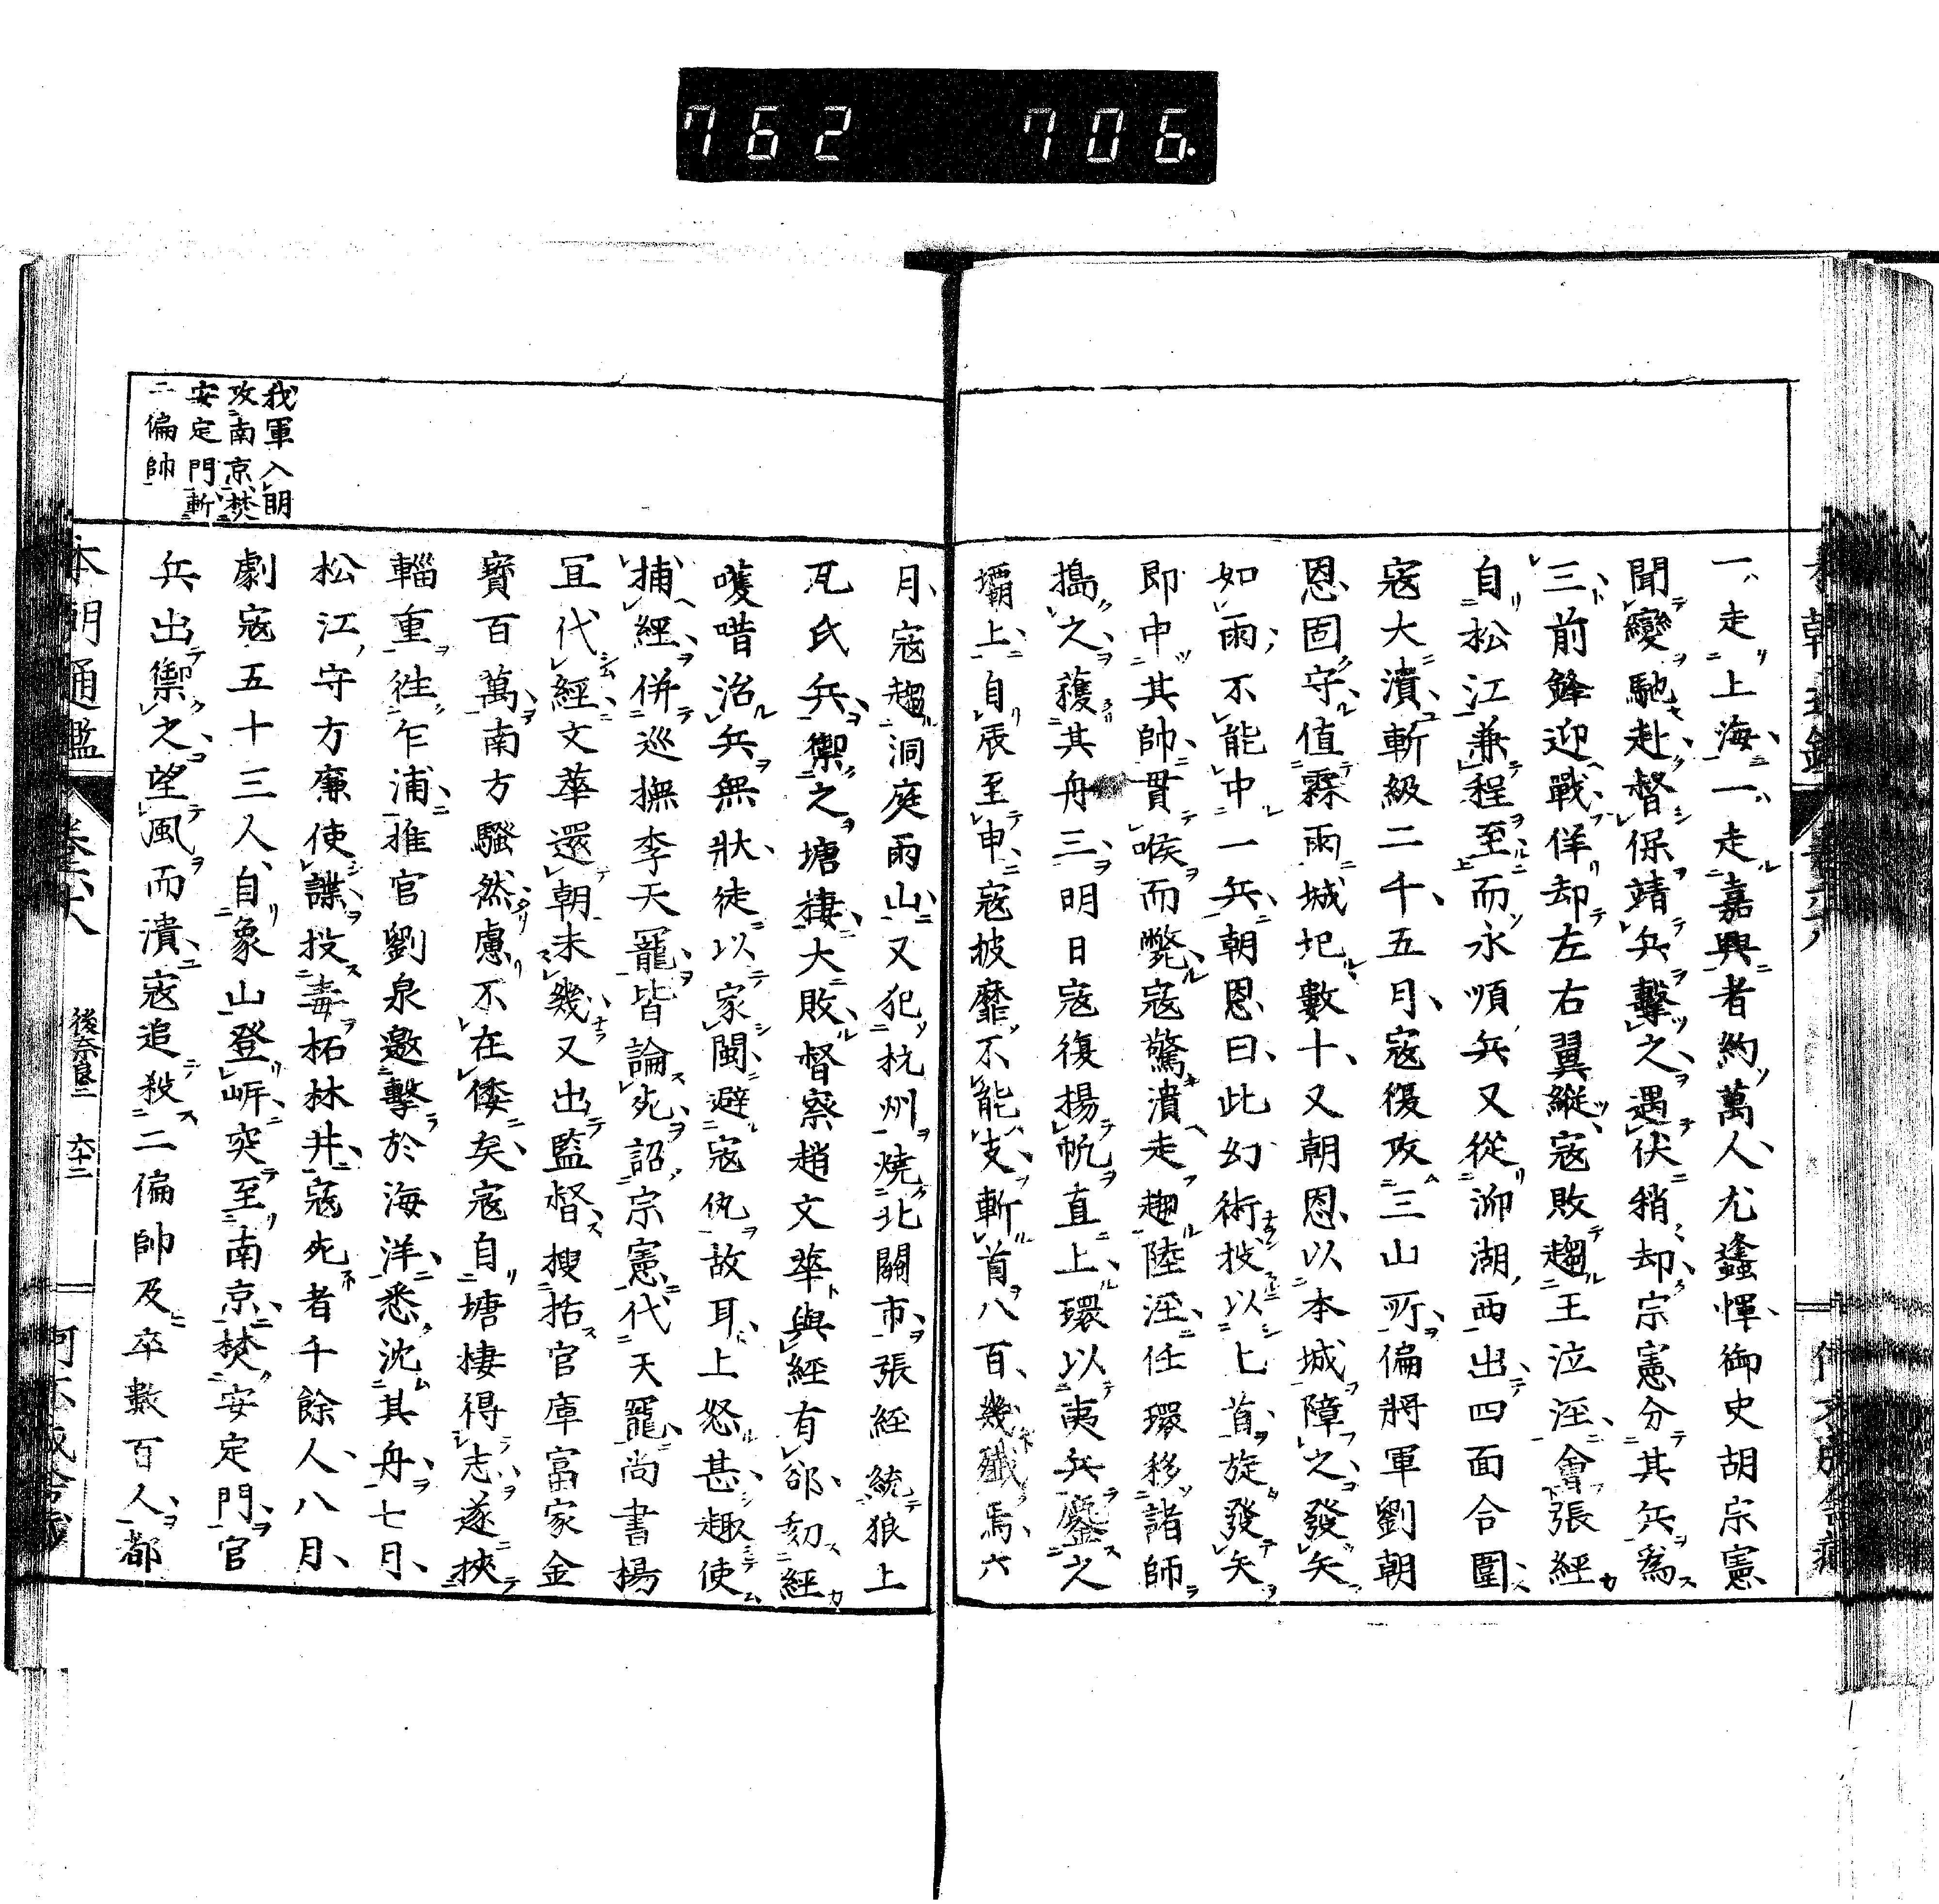 762 706
一走上海一走嘉興者約萬人尤螽惲御史胡宗憲
聞變馳赴督保靖兵擊之遇伏稍却宗憲分其兵爲
三前鋒迎戰佯却左右翼縱寇敗趨王涇涇會張經
自松江兼程至而永順兵又從泖湖西出四面合圍
寇大潰斬級二千五月寇復攻三山所偏將軍劉朝
恩固守值霖雨城圮數十又朝恩以本城障之發矢
如雨不能中一兵朝恩曰此幻術投以匕首旋發矢
即中其帥貫喉而斃寇驚潰走趨陸涇任環移諸師
搗之獲其舟三明日寇復揚帆直上環以夷兵鏖之
壩上自辰至申寇披靡不能支斬首八百幾殲焉六
月寇趨洞庭雨山又犯杭州燒北關市張經統狼上
瓦氏兵禦之塘棲大敗督察趙文華與經有郤劾經
嚄唶治兵無狀徒以家閩避寇仇故耳上怒甚趣使
捕經併巡撫李天寵皆論死詔宗憲代天寵尚書楊
宜代經文華還朝未幾又出監督搜括官庫富家金
寶百萬南方騷然慮不在倭矣寇自塘棲得志遂挾
輜重徃乍浦推官劉泉邀擊於海洋悉沈其舟七月
松江守方廉使諜投毒柘林井寇死者千餘人八月
劇寇五十三人自象山登岸突至南京焚安定門官
兵出禦之望風而潰寇追殺二偏帥及卒數百人都
我軍入明
攻南京焚
安定門斬
二偏帥
本朝通鑑
後奈良三 六十二